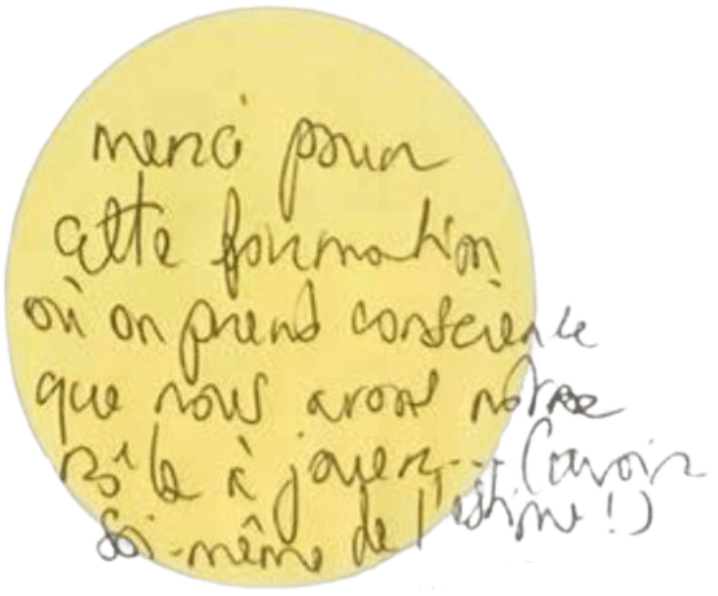 merci pour
cette formation
où on prend conscience
que nous avons notre
rôle à jouer... (avoir
soi-même de l'estime !)